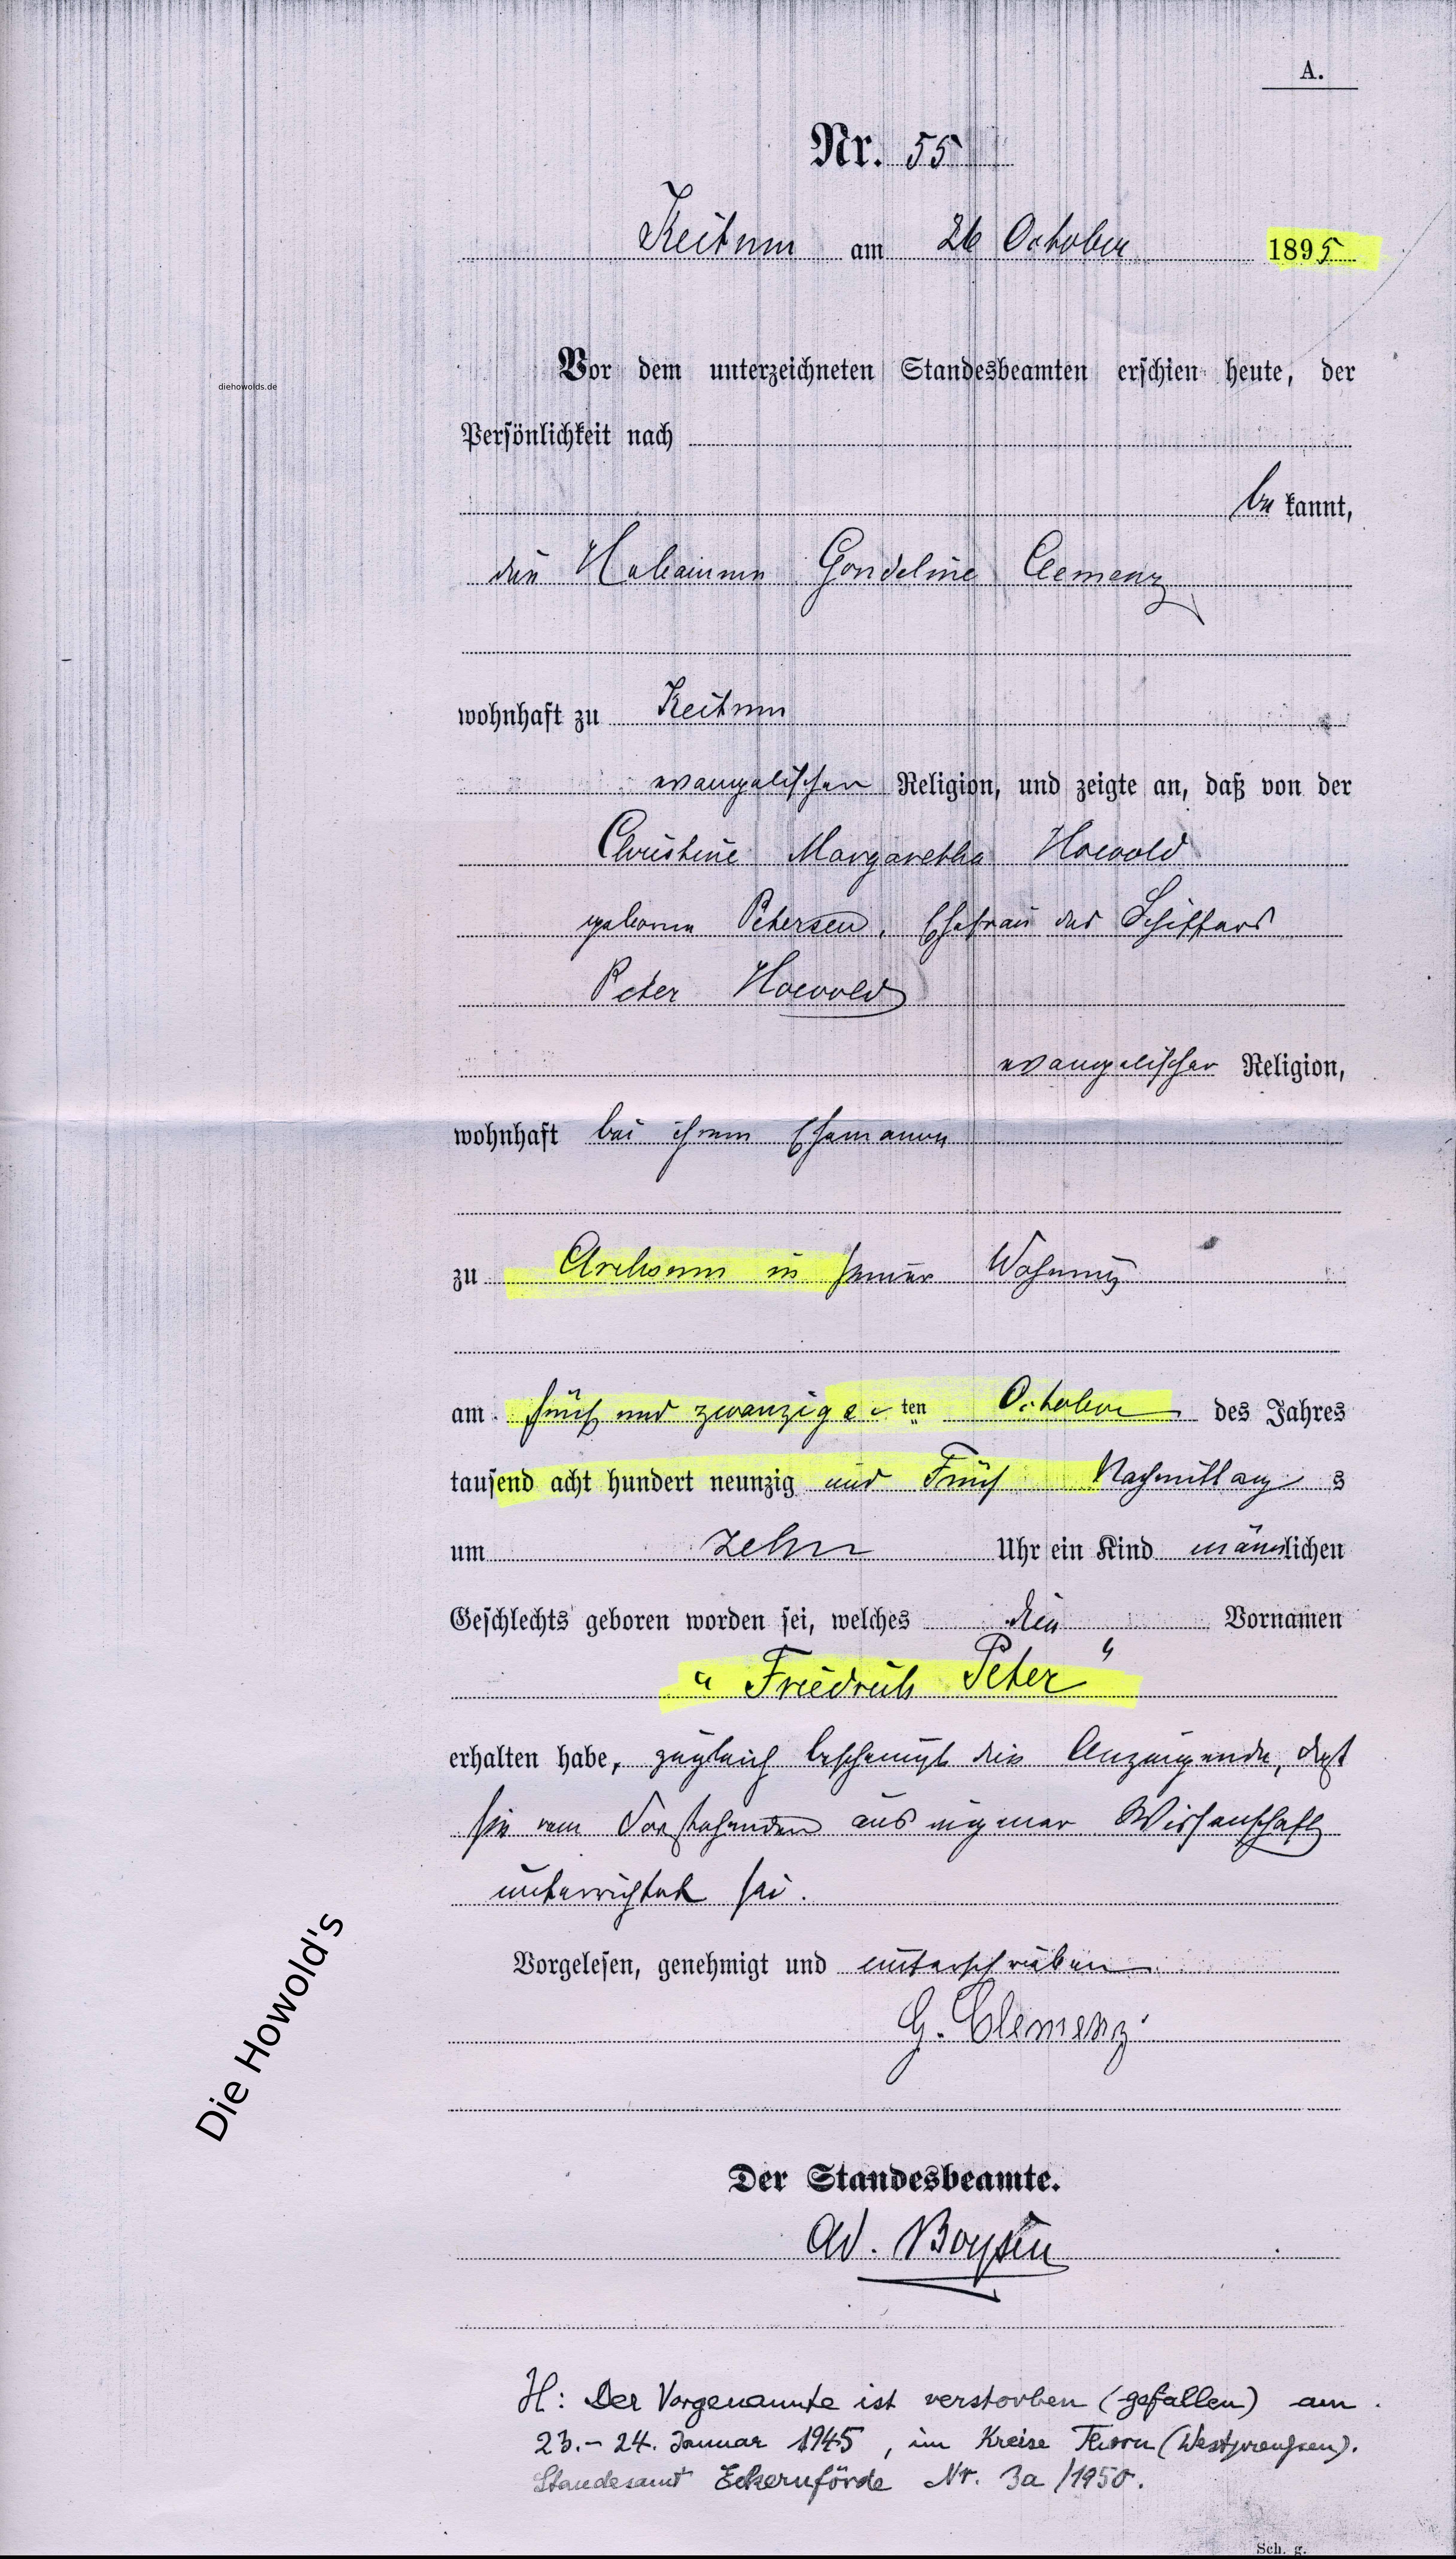 A.
Nr. 55
Keitum am 26 October 1895
Vor dem unterzeichneten Standesbeamten erschien heute, der
Persönlichkeit nach
be kannt,
die Hebamme Gondeline Clemenz
wohnhaft zu Keitum
evangelischer Religion, und zeigte an, daß von der
Christine Margaretha Howold
geborne Petersen, Ehefrau des Schiffers
Peter Howold
evangelischer Religion,
wohnhaft bei ihrem Ehemann
zu Archsum in seiner Wohnung
am fünf und zwanzigs ten October des Jahres
tausend acht hundert neunzig und Fünf Nachmittag s
um zehn Uhr ein Kind männlichen
Geschlechts geboren worden sei, welches die Vornamen
"Friedrich Peter"
erhalten habe, zugleich bescheinigt die Anzeigende, daß
sie vom Vorstehenden aus eigener Wissenschaft
unterrichtet sei.
Vorgelesen, genehmigt und unterschrieben
G. Clemenz
Der Standesbeamte.
Ad. Boysen
H: Der Vorgenannte ist verstorben (gefallen) am
23.-24. Januar 1945, im Kreise Thorn (Westpreußen).
Standesamt Eckernförde Nr. 3a/1950.
Sch. g.
diehowolds.de
Die Howold's